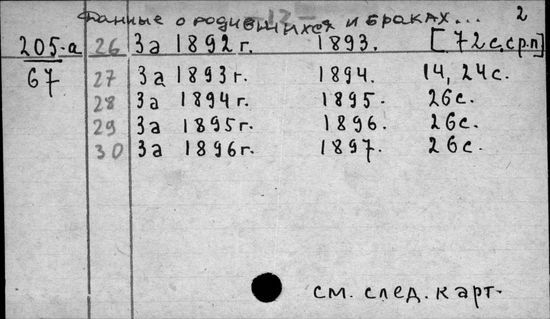 Данные о родившихся и браках... 2
205-а 26 За 1892 г. 1893. [72 с, ср.п]
67 27 За 1893 г. 1894. 14, 24с.
28 За 1894 г. 1895. 26с.
29 За 1895 г. 1896. 26с.
30 За 1896 г. 1897. 26с.
см. след. карт.